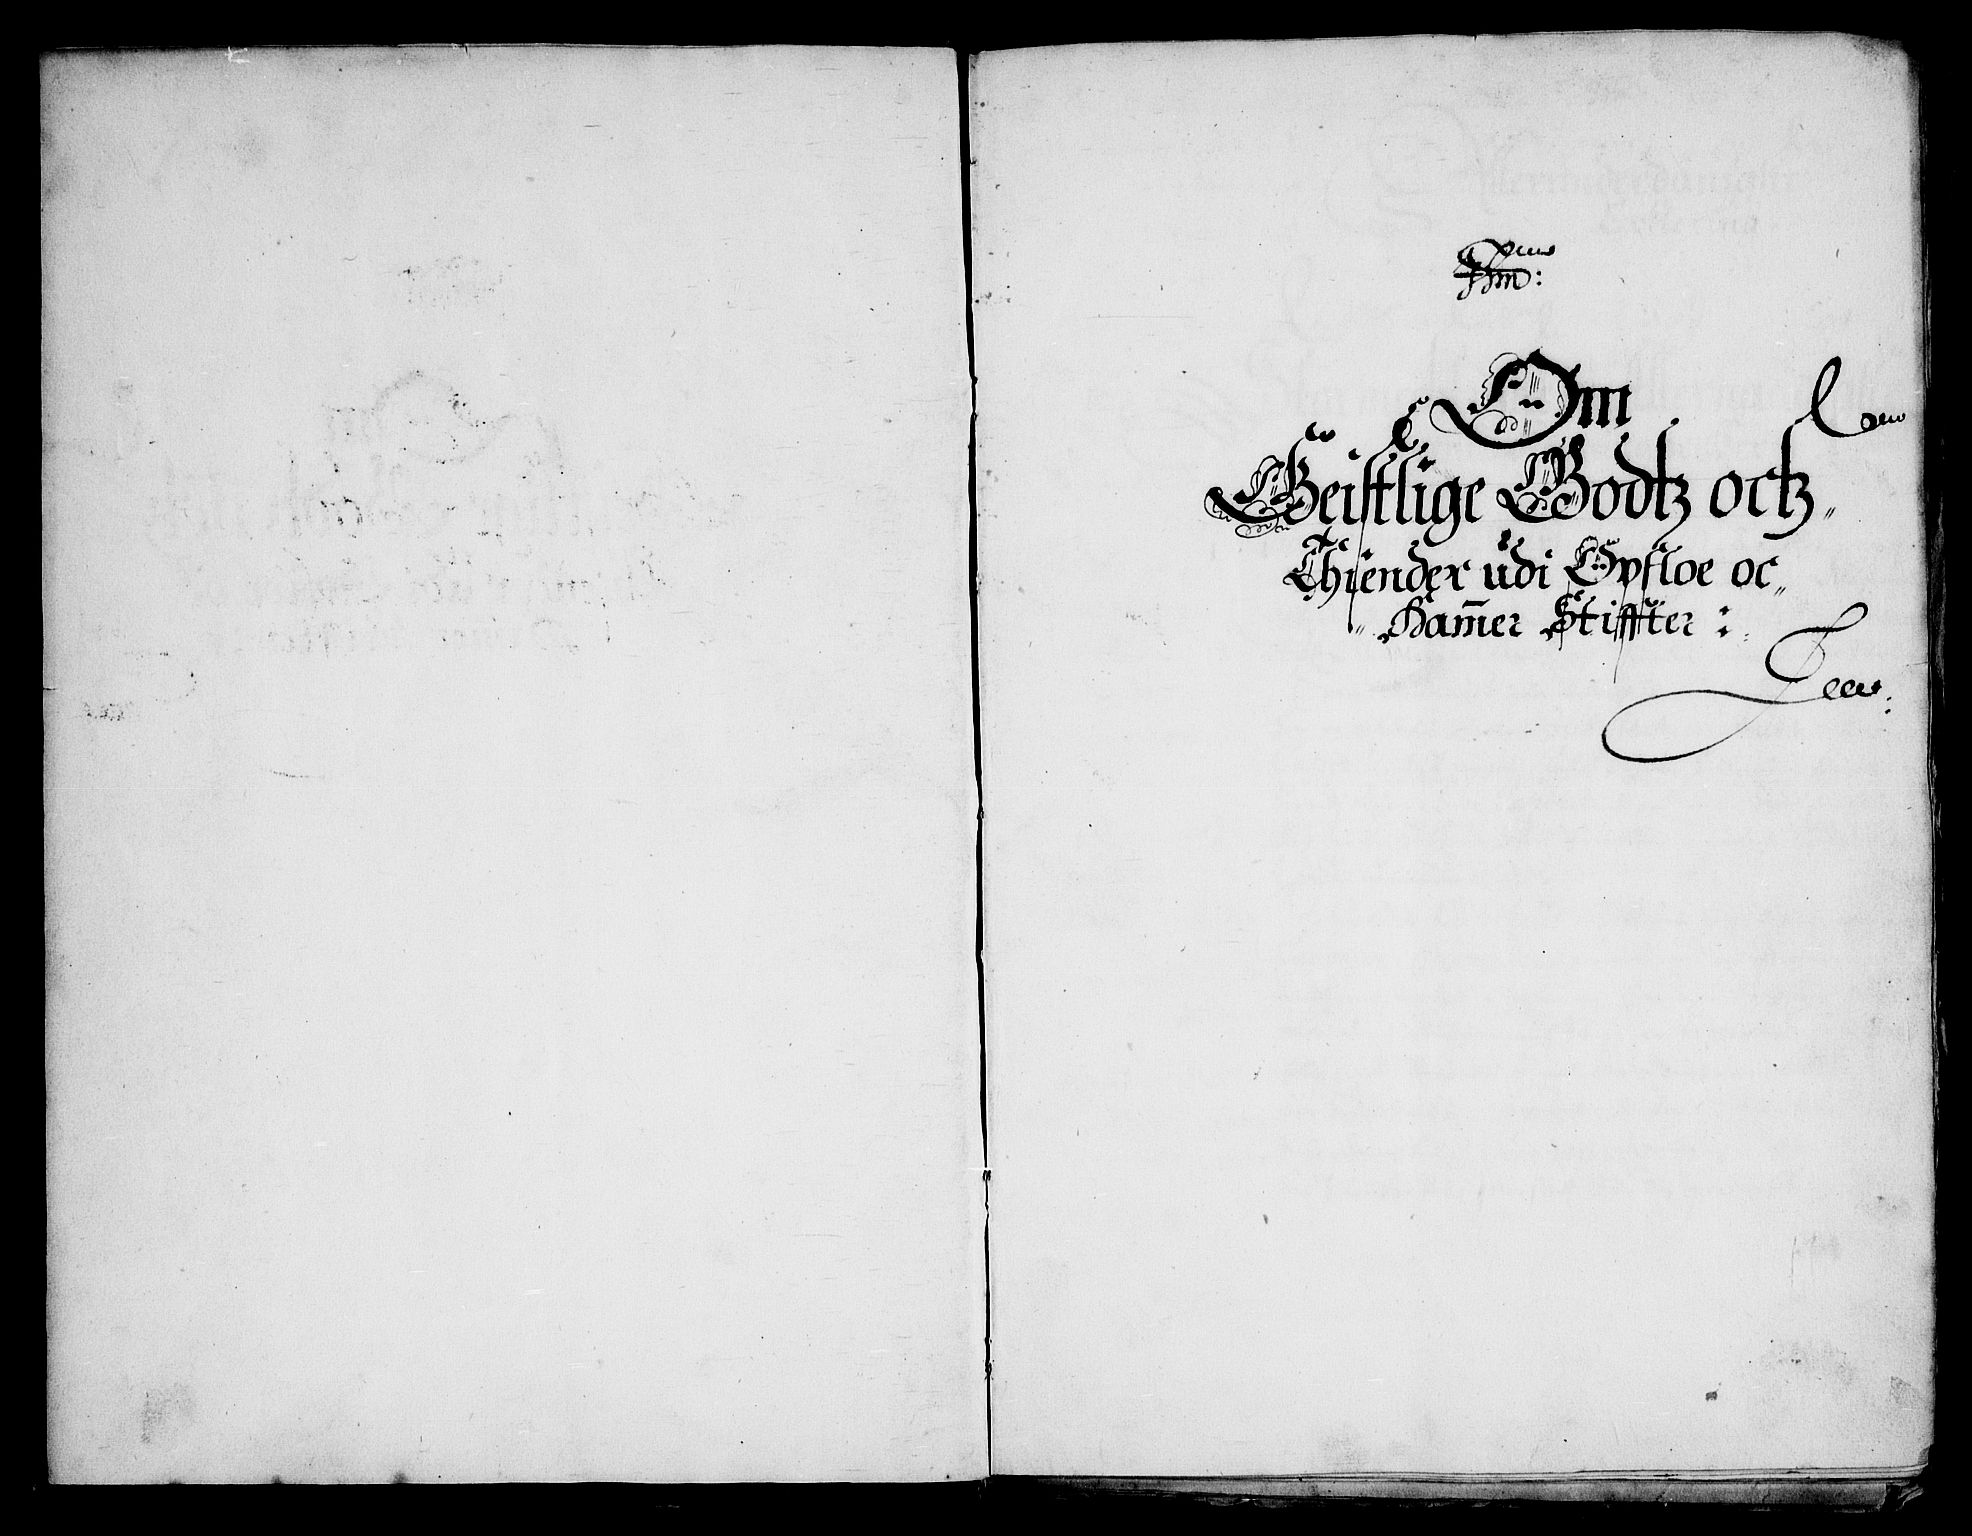 Om
Geistlige Godtz octz
Thiender udi Opsloe oc
Ham̄er Stiffter :